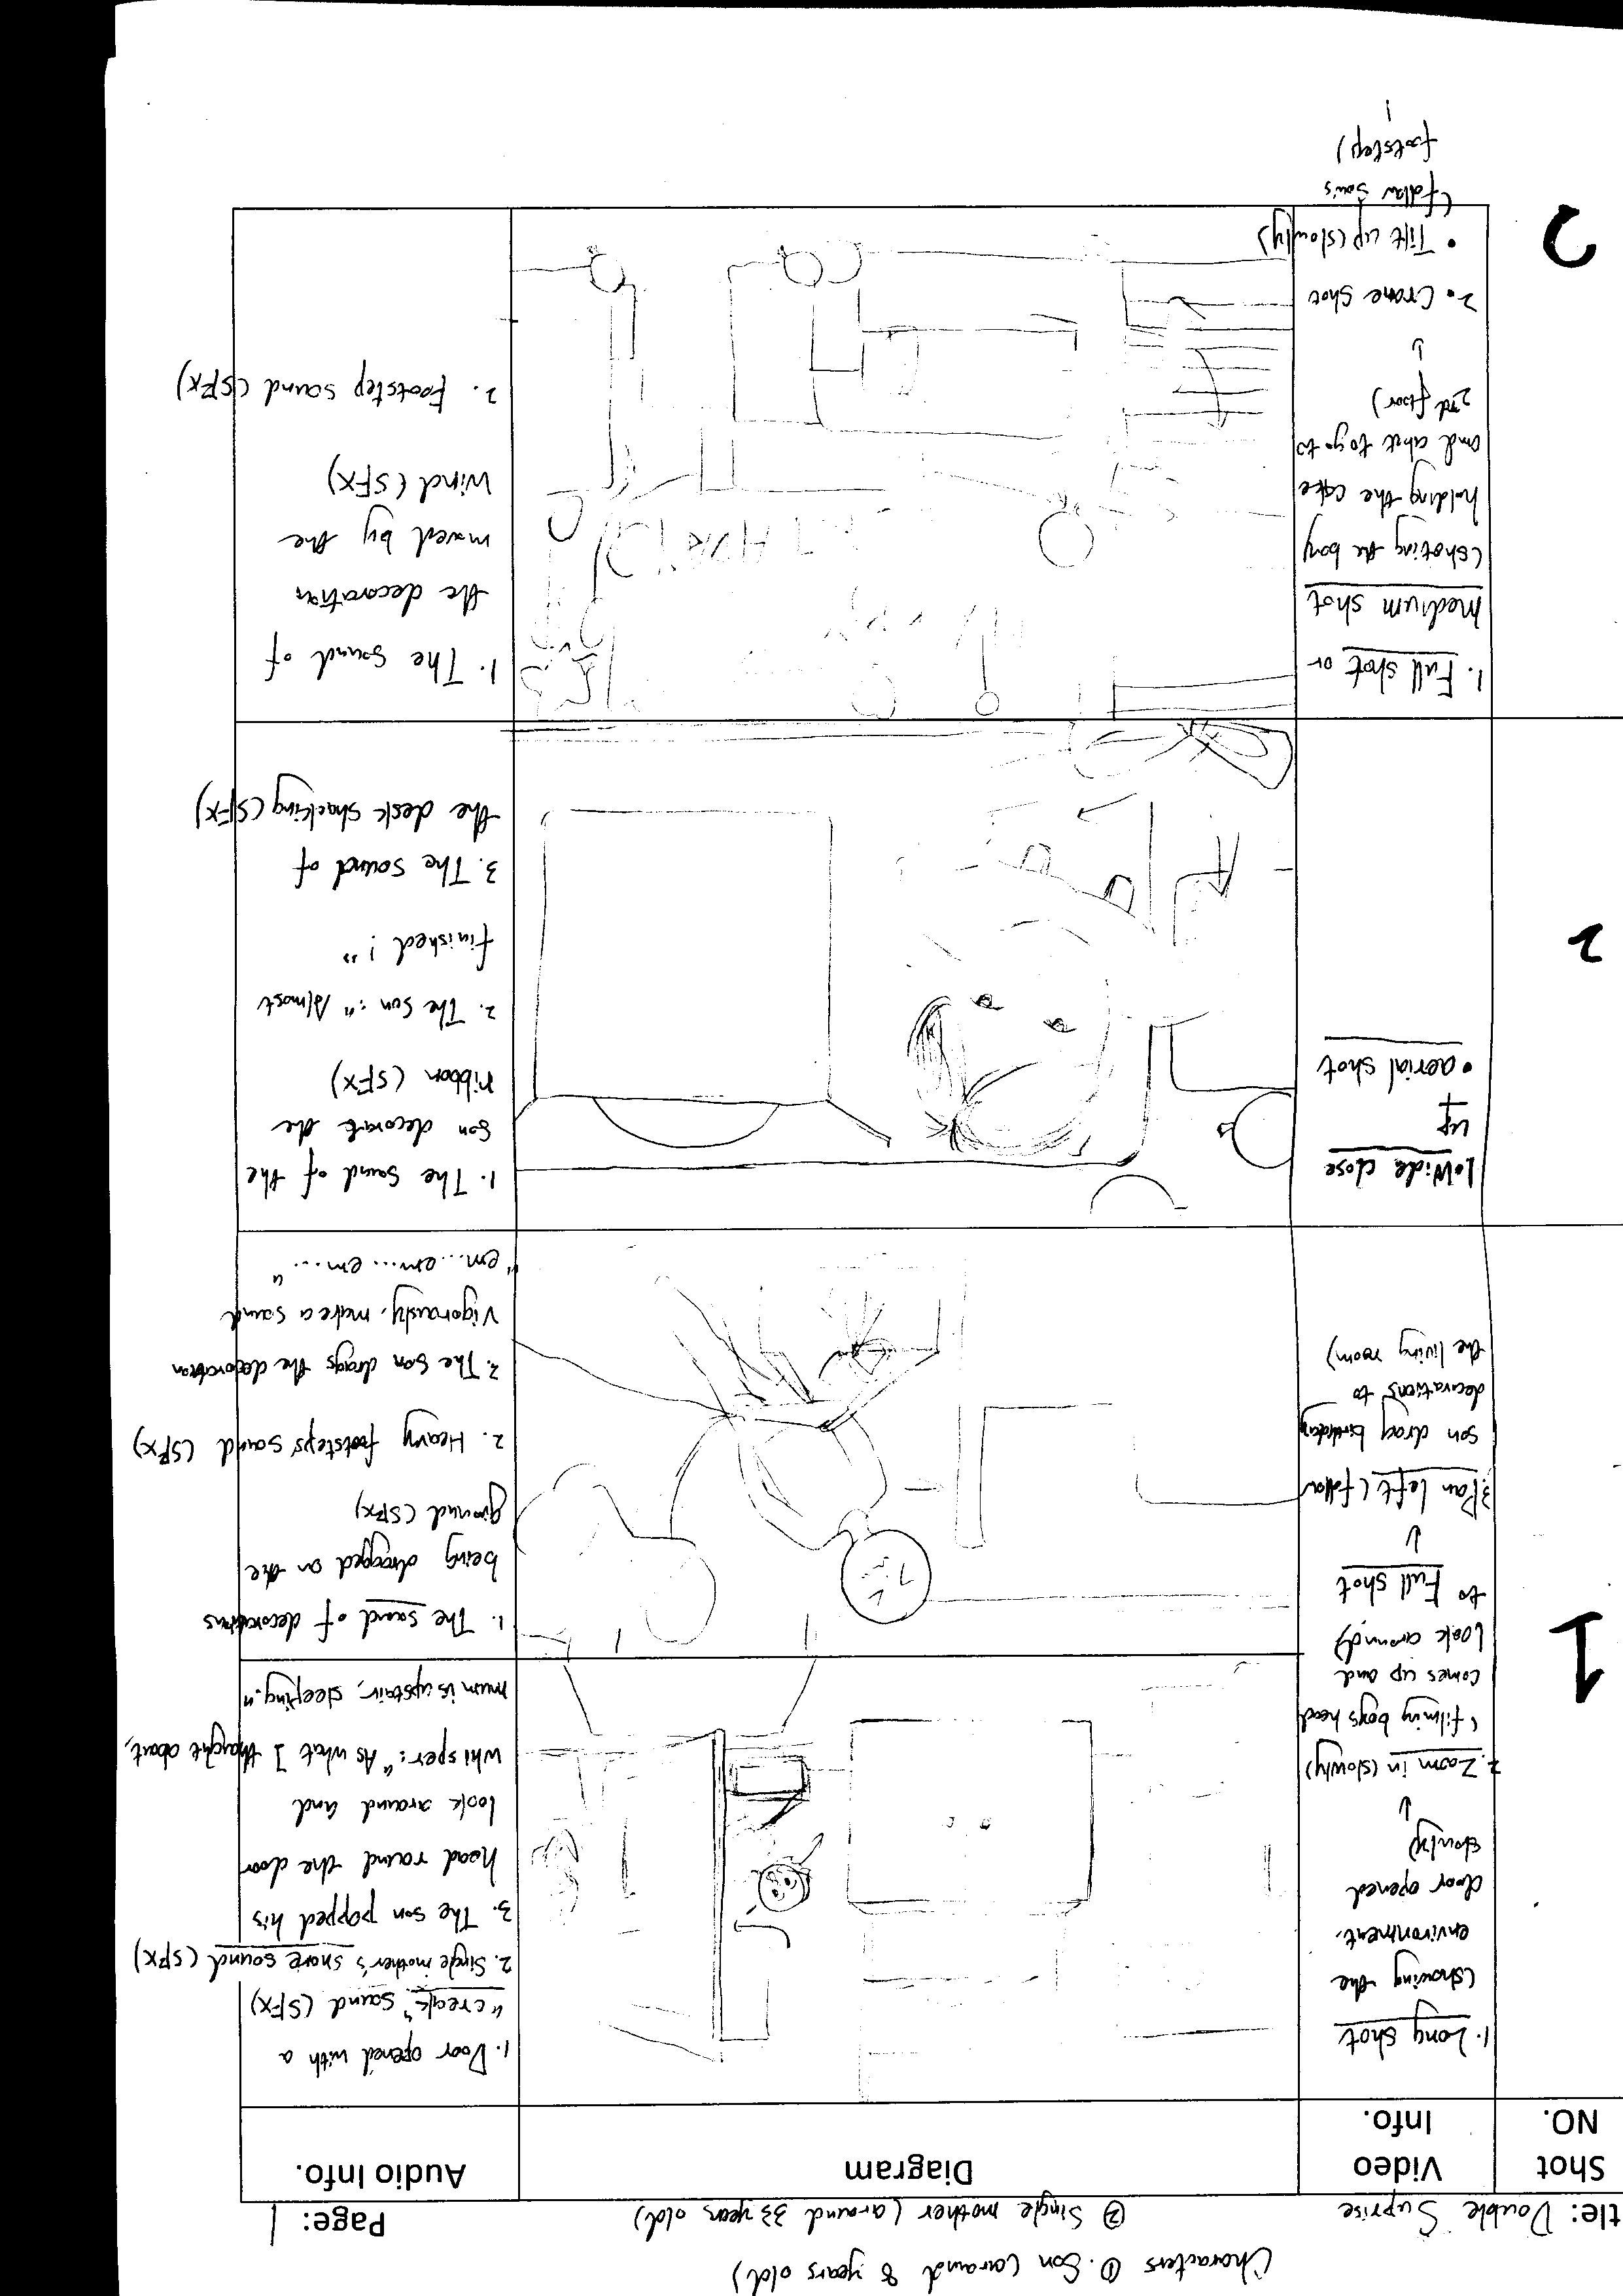 Characters ①. Son (around 8 years old)
② Single mother (around 33 years old)
tle: Double Suprise
Page: 1
Shot
NO.
Video
Info.
Diagram
Audio Info.
1
1. Long shot
(showing the
environment.
door opened
slowly)
↓
2. Zoom in (slowly)
(filming boys head
comes up and
look around)
to Full shot
↓
3. Pan left (follow
son drag birthday
decorations to
the living room)
1. Door opened with a
"creak" sound (SFX)
2. Single mother's snore sound (SFX)
3. The son popped his
head round the door
look around and
whisper: "As what I thought about,
mum is upstair, sleeping."
1. The sound of decorations
being dragged on the
ground (SFX)
2. Heavy footsteps sound (SFX)
3. The son drags the decoration
vigorously, make a sound
"em...em...em..."
2
1. Wide close
up
+
• aerial shot
1. The sound of the
son decorate the
ribbon (SFX)
2. The son: "Almost
finished!"
3. The sound of
the desk shacking (SFX)
3
1. Full shot or
medium shot
(shoting the boy
holding the cake
and abut to go to
2nd floor)
↓
2. Crane shot
• Tilt up (slowly)
(follow son's
footstep)
1. The sound of
the decoration
moved by the
wind (SFX)
2. Footstep sound (SFX)